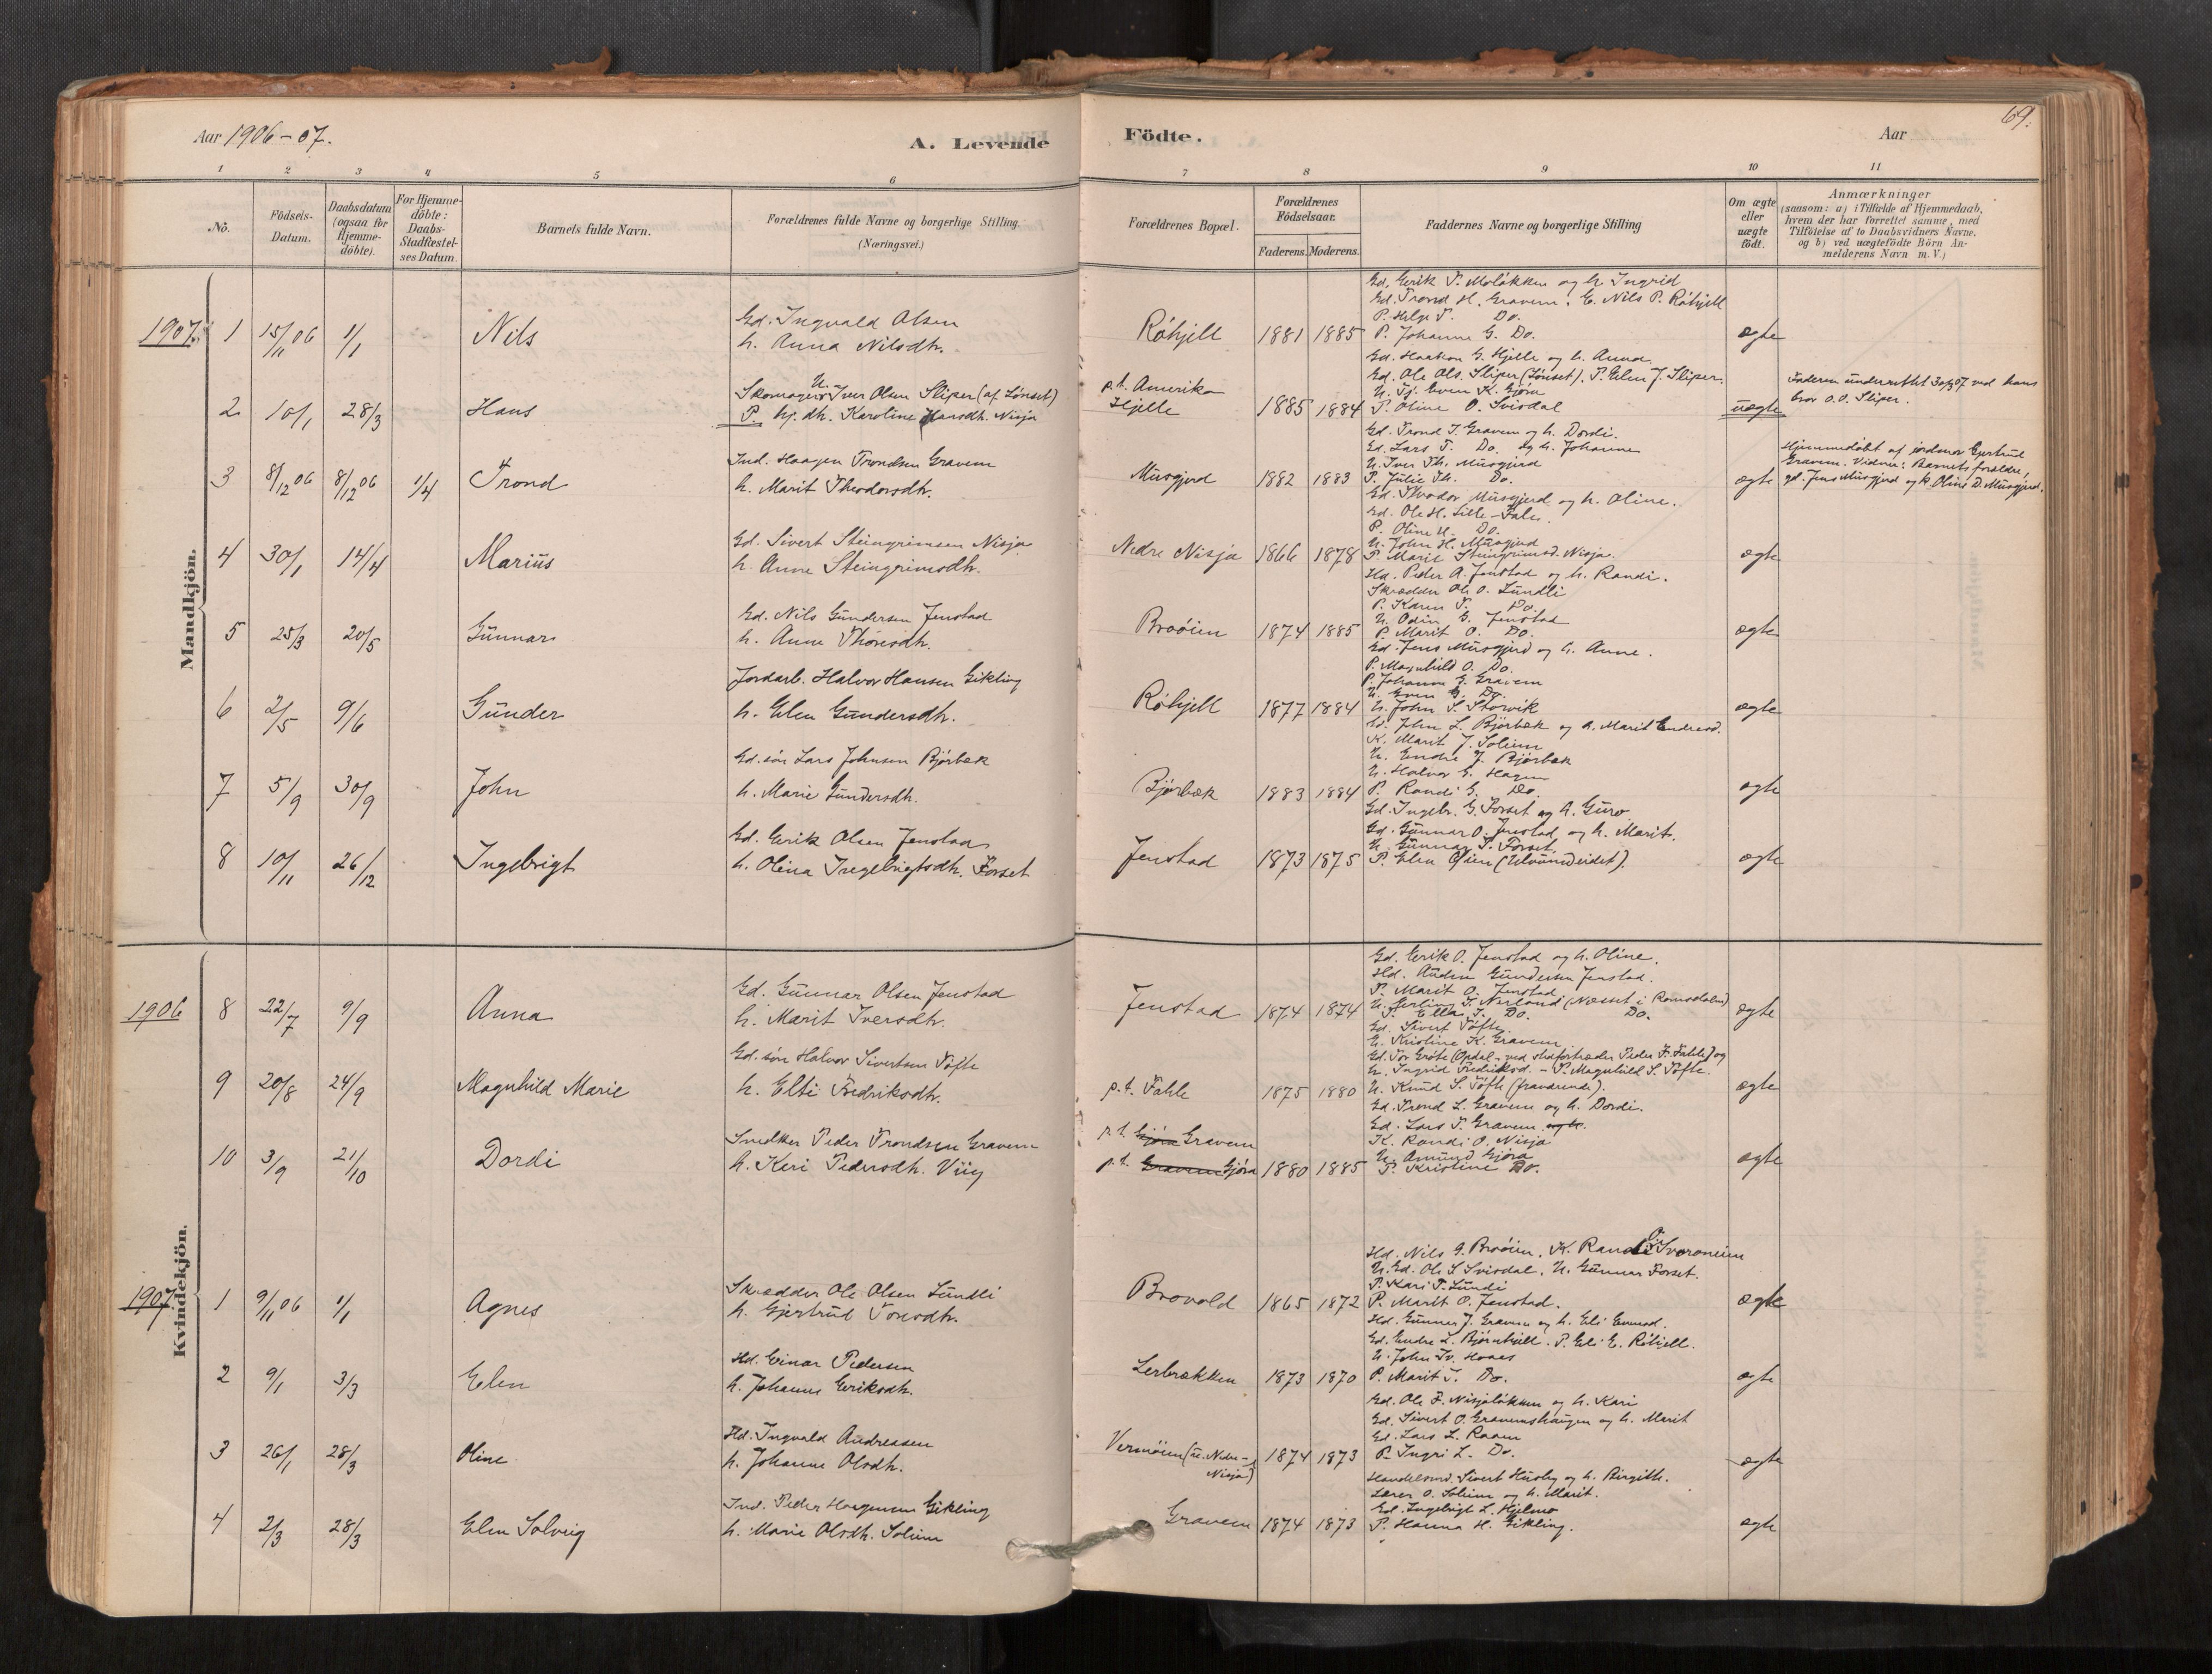 Aar 1906-07.
A. Levende
Födte.
Aar
69.
1 2 3 4 5 6 7 8 9 10 11
No.
Födsels-
Datum.
Daabsdatum
(ogsaa for
Hjemme-
döbte).
For Hjemme-
döbte:
Daabs-
Stadfæstel-
ses Datum.
Barnets fulde Navn.
Forældrenes fulde Navne og borgerlige Stilling.
(Næringsvei.)
Forældrenes Bopæl.
Forældrenes
Födselsaar.
Faderens. Moderens.
Faddernes Navne og borgerlige Stilling
Om ægte
eller
uægte
födt.
Anmærkninger
(saasom: a) i Tilfælde af Hjemmedaab,
hvem der har forrettet samme, med
Tilföielse af to Daabsvidners Navne,
og b) ved uægtefödte Börn An-
melderens Navn m. V.)
Mandkjön.
1907. 1 15/11 06 1/1 Nils
Gd. Ingvald Olsen
h. Anna Nilsdtr.
Röhjell 1881 1885
Gd. Erik T. Moløkken og h. Ingrid
Gd. Trond H. Gravem. G. Nils P. Röhjell
P. Helge T. Do.
P. Johanne G. Do.
ægte
2 10/1 28/3 Hans
Skomager U. Iver Olsen Sliper (af Lønset)
P. gj. dtr. Karoline Hansdtr. Nisja
p.t. Amerika
Hjelle 1885 1884
Gd. Haakon G. Hjelle og h. Anna
Gd. Ole Ols. Sliper (Lønset). P. Elen J. Sliper.
U. Tj. Even K. Gjøra
P. Oline O. Svisdal
uægte
Faderen underrettet 30/3 07 ved hans
bror O.O. Sliper.
3 8/12 06 8/12 06 1/4 Trond
Ind. Haagen Trondsen Gravem
h. Marit Theodorsdtr.
Musgjerd 1882 1883
Gd. Trond T. Gravem og h. Dordi.
Gd. Lars T. Do. og h. Johanne
U. Iver Th. Musgjerd
P. Julie Th. Do.
ægte
Hjemmedøbt af jordmor Gjertrud
Gravem. Vidner: Barnets forældre,
gd. Jens Musgjerd og P. Oline D. Musgjerd.
4 30/1 14/4 Marius
Gd. Sivert Steingrimsen Nisja
h. Anne Steingrimsdtr.
Nedre Nisja 1866 1878
Gd. Theodor Musgjerd og h. Oline.
Gd. Ole H. Lille-Fale.
P. Oline H. Do.
U. John H. Musgjerd
P. Marie Steingrimsd. Nisja.
ægte
5 25/3 20/5 Gunnar
Gd. Nils Gundersen Jenstad
h. Anne Thoresdtr.
Broöien 1874 1885
Hd. Peder A. Jenstad og h. Randi.
Skrædder Ole O. Lundli
P. Karen T. Do.
U. Odin G. Jenstad
P. Marit O. Do.
ægte
6 2/5 9/6 Gunder
Jordarb. Halvor Hansen Gikling
h. Elen Gundersdtr.
Röhjell 1877 1884
Gd. Jens Musgjerd og h. Anne.
P. Magnhild O. Do.
P. Johanne J. Gravem
U. Even G. Do.
U. John S. Storvik
ægte
7 5/9 30/9 John
Gd. søn Lars Johnsen Bjørbæk
h. Marie Gundersdtr.
Bjørbæk 1883 1884
Gd. John L. Bjørbæk og h. Marit Endresd.
K. Marit J. Solium
U. Endre J. Bjørbæk
U. Halvor E. Hagen
P. Randi E. Do.
ægte
8 10/11 26/12 Ingebrigt
Gd. Erik Olsen Jenstad
h. Olina Ingebrigtsdtr. Forset
Jenstad 1873 1875
Gd. Ingebr. G. Forset og h. Guro
Gd. Gunnar O. Jenstad og h. Marit.
U. Gunnar I. Forset.
P. Elen Øien (Ulvundeidet).
ægte
Kvindekjön.
1906 8 22/7 9/9 Anna
Gd. Gunnar Olsen Jenstad
h. Marit Iversdtr.
Jenstad 1874 1874
Gd. Erik O. Jenstad og h. Oline.
Hd. Auden Gundersen Jenstad.
P. Marit O. Jenstad
U. Erling I. Nerland (Nesset i Romsdalen)
P. Ella I. Do. Do.
ægte
9 20/8 24/9 Magnhild Marie
Gd. søn Halvor Sivertsen Tøfte
h. Elti Fredriksdtr.
p.t. Fahle 1875 1880
Gd. Sivert Tøfte.
U. Kristine K. Gravem
Gd. Tor Grøte (Opdal - ved stedfortræder Peder F. Fahle) og
h. Ingrid Fredriksd. - P. Magnhild S. Tøfte.
U. Knud S. Tøfte (fraværende).
ægte
10 3/9 21/10 Dordi
Snedker Peder Trondsen Gravem
h. Kari Pedersdtr. Viig
p.t. Gjøra Gravem
p.t. Gravem Gjøra 1880 1885
Gd. Trond L. Gravem og h. Dordi.
Gd. Lars T. Gravem og h.
K. Randi O. Nisja
U. Amund Gjøra
P. Kristine Do.
ægte
1907. 1 9/11 06 1/1 Agnes
Skrædder Ole Olsen Lundli
h. Gjertrud Toresdtr.
Brovold 1865 1872
Hd. Nils G. Broöien. K. Randi O. Svorоneien
U. Gd. Ole S. Svisdal. U. Gunnar Forset.
P. Kari T. Lundli
P. Marit O. Jenstad.
ægte
2 9/1 3/3 Elen
Hd. Einar Pedersen
h. Johanne Eriksdtr.
Lerbrækken 1873 1870
Hd. Gunnar J. Gravem og h. Eli Evensd.
Gd. Endre L. Bjørnhjell. P. Eli E. Röhjell.
U. John Iv. Hoaas
P. Marit I. Do.
ægte
3 26/1 28/3 Oline
Hd. Ingvald Andreasen
h. Johanne Olsdtr.
Vermøien (u. Nedre-
Nisja) 1874 1873
Gd. Ole F. Nisjaløkken og h. Kari
Gd. Sivert O. Gravemshaugen og h. Marit
Gd. Lars L. Raaen
P. Ingri L. Do.
ægte
4 2/3 28/3 Elen Solveig
Ind. Peder Haagensen Gikling
h. Marie Olsdtr. Solium
Gravem 1874 1873
Handelsmd. Sivert Husby og h. Birgith.
Lærer O. Solium og h. Marit.
Gd. Ingebrigt L. Hjelmo
P. Hanna H. Gikling.
ægte